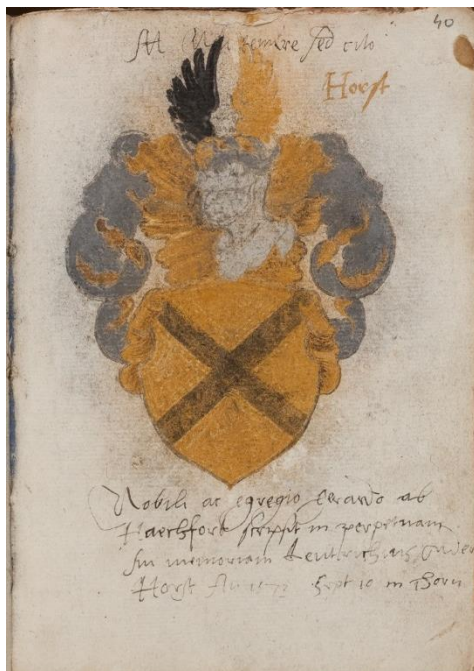 40
temere sed cito
Horst
Nobili ac egregio Gerardo ab
Haechfort scripsit in perpetuam
sui memoriam
Horst An Sept 10 in